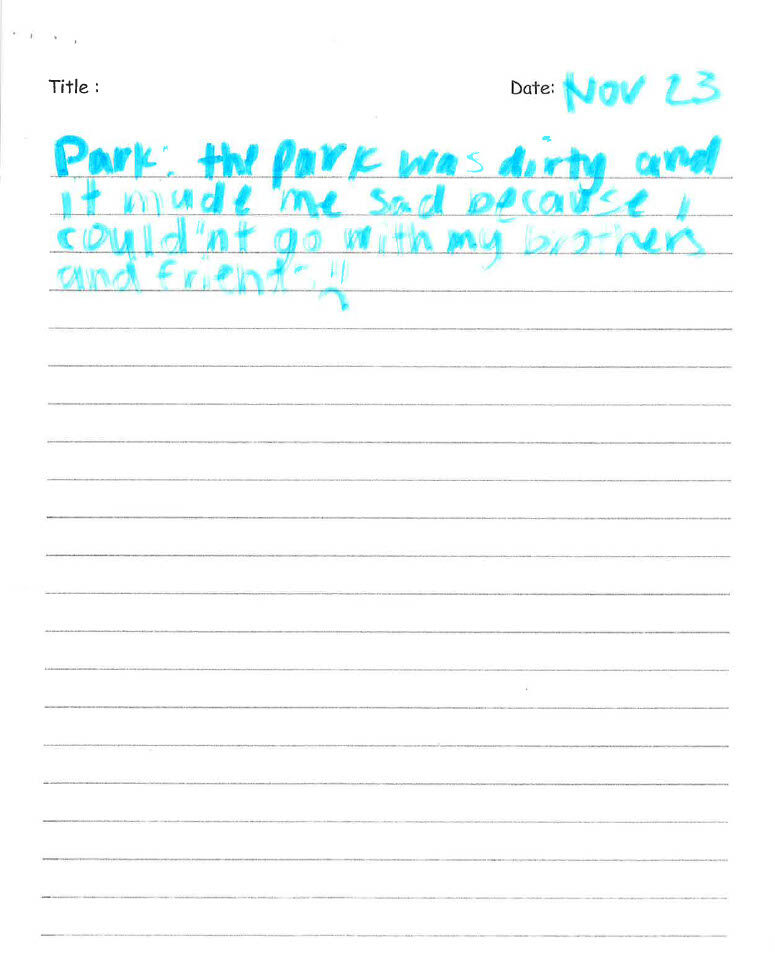 Title :
Date: Nov 23
Park: the park was dirty and
it made me sad because i
could'nt go with my brothers
and friends